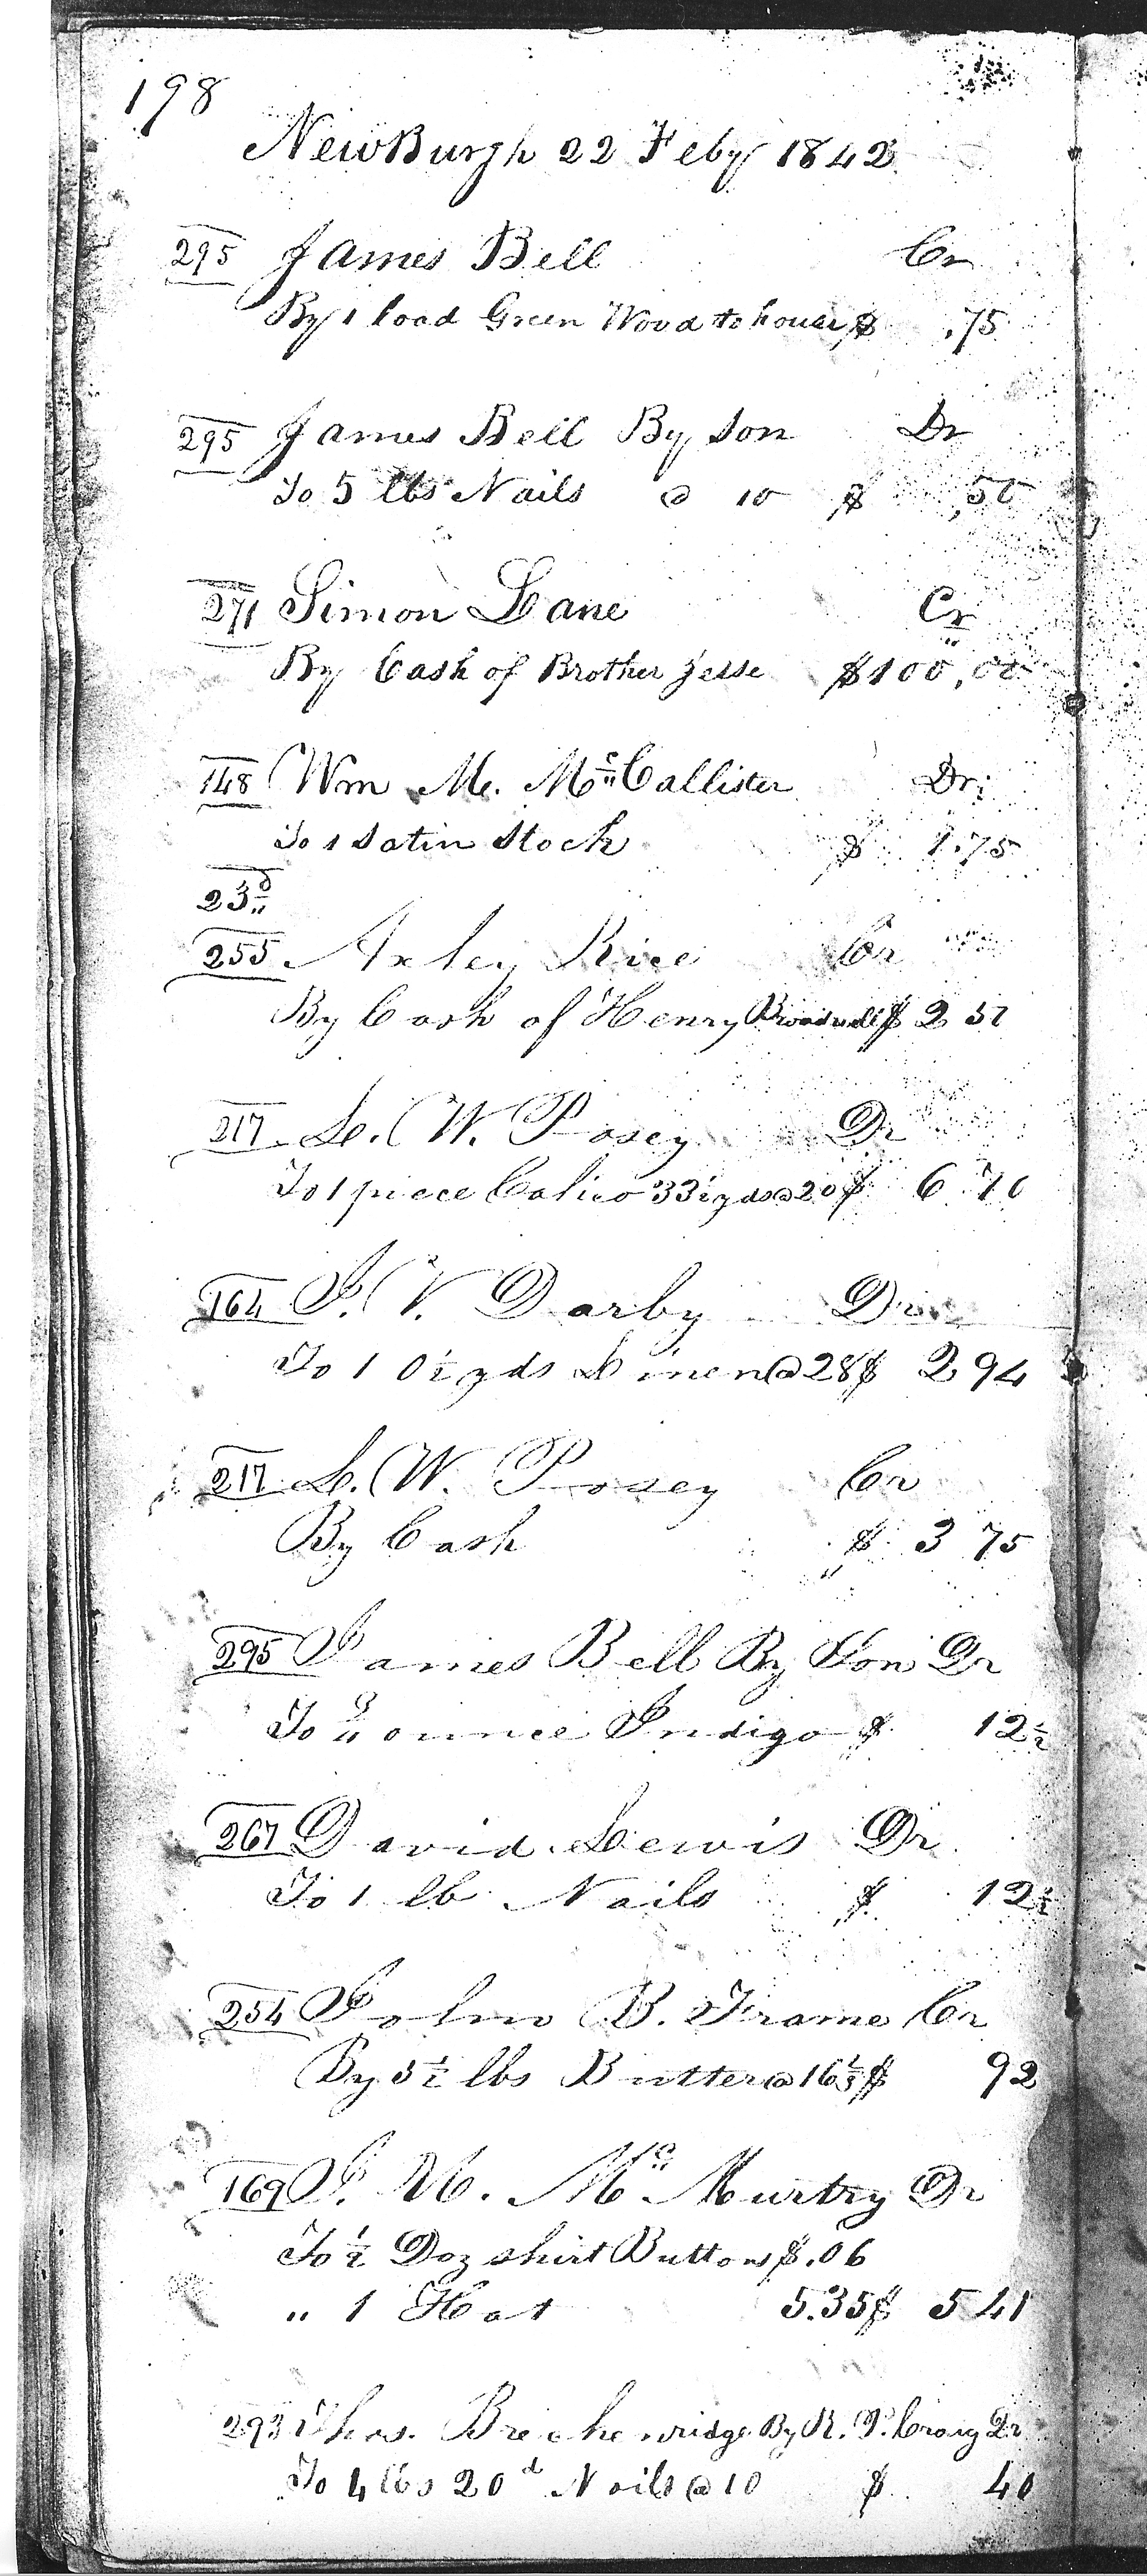 198
NewBurgh 22 Feby 1842
295 James Bell Cr
By 1 load Green Wood to house $ .75
295 James Bell By Son Dr
To 5 lbs Nails @ 10 $ ,50
271 Simon Lane Cr
By Cash of Brother Jesse $100,00
148 Wm M. McCallister Dr
To 1 Satin Stock $ 1.75
23d
255 Axley Rice Cr
By Cash of Henry $ 2 50
217 L. W. Posey Dr
To 1 piece Calico 33½ yds @ 20 $ 6 70
164 J. V. Darby Dr
To 10½ yds Linen @ 28 $ 2 94
217 L. W. Posey Cr
By Cash $ 3 75
295 James Bell By Son Dr
To ounce Indigo $ 12½
267 David Lewis Dr
To 1 lb Nails $ 12½
254 John B. Frame Cr
By 5½ lbs Butter @ 16⅔ $ 92
169 J. M. Mc Murtry Dr
To ½ Doz shirt Buttons $.06
" 1 Hat 5.35 $ 5 41
293 Thos. Brechenridge By R. P. Craig Dr
To 4 lbs 20d Nails @ 10 $ 40